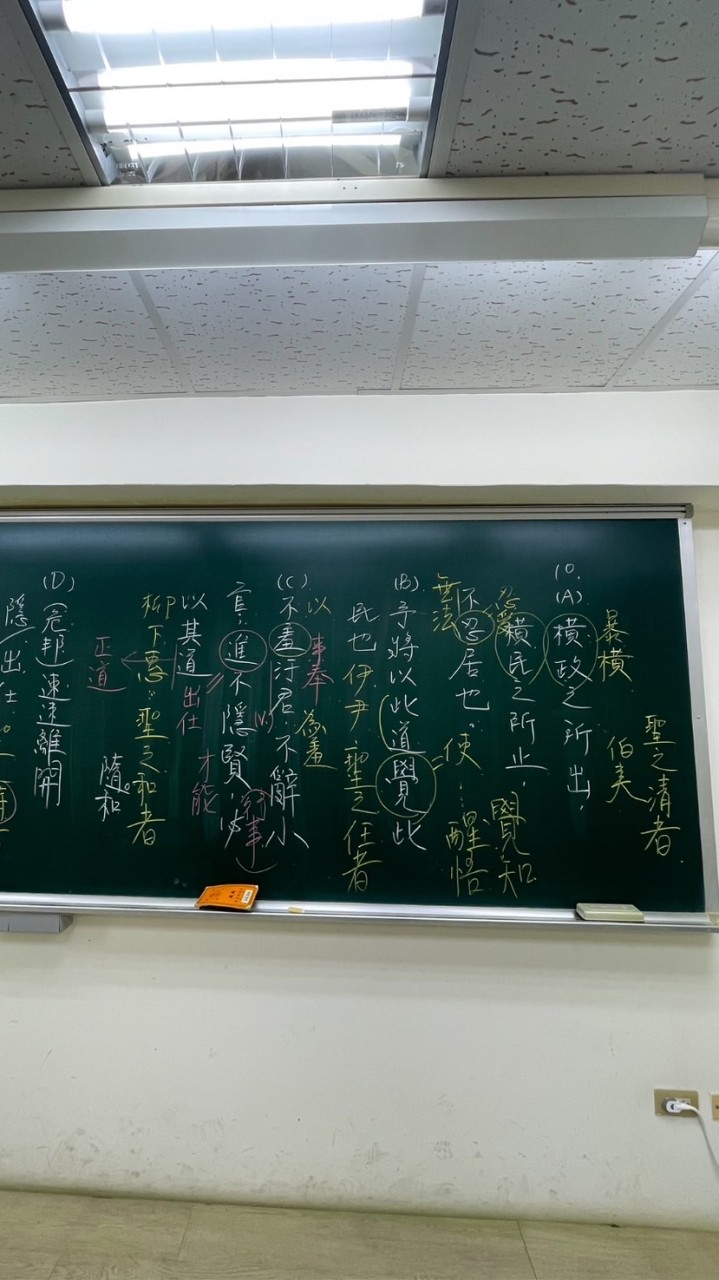 聖之清者
伯夷
暴橫
10.
(A)橫政之所出，
橫民之所止，
忍受
不忍居也。
無法
使…醒悟
覺知
(B)予將以此道覺此
民也
伊尹 聖之任者
以 為羞
事奉
(C)不羞汙君，不辭小
官，進不隱賢，必
(V.)
行事
才能
出仕
以其道
柳下惠：聖之和者
隨和
正道
(D)危邦速速離開
隱/出仕